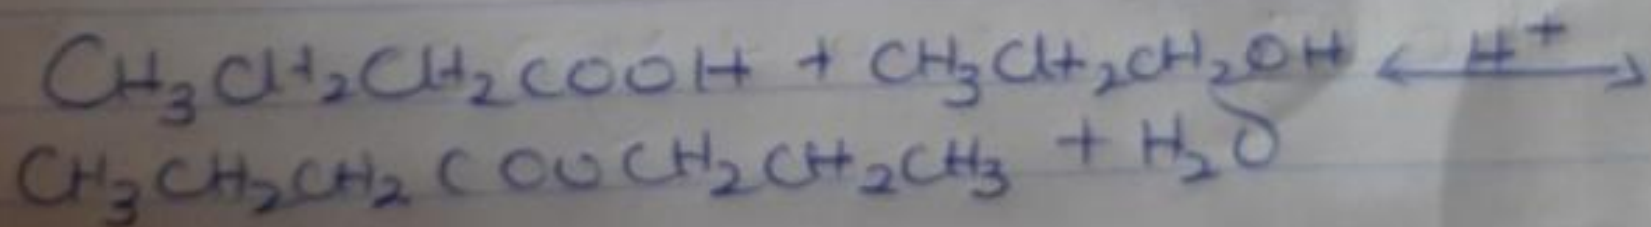 CH₃CH₂CH₂COOH + CH₃CH₂CH₂OH ⟷ H⁺
CH₃CH₂CH₂COOCH₂CH₂CH₃ + H₂O